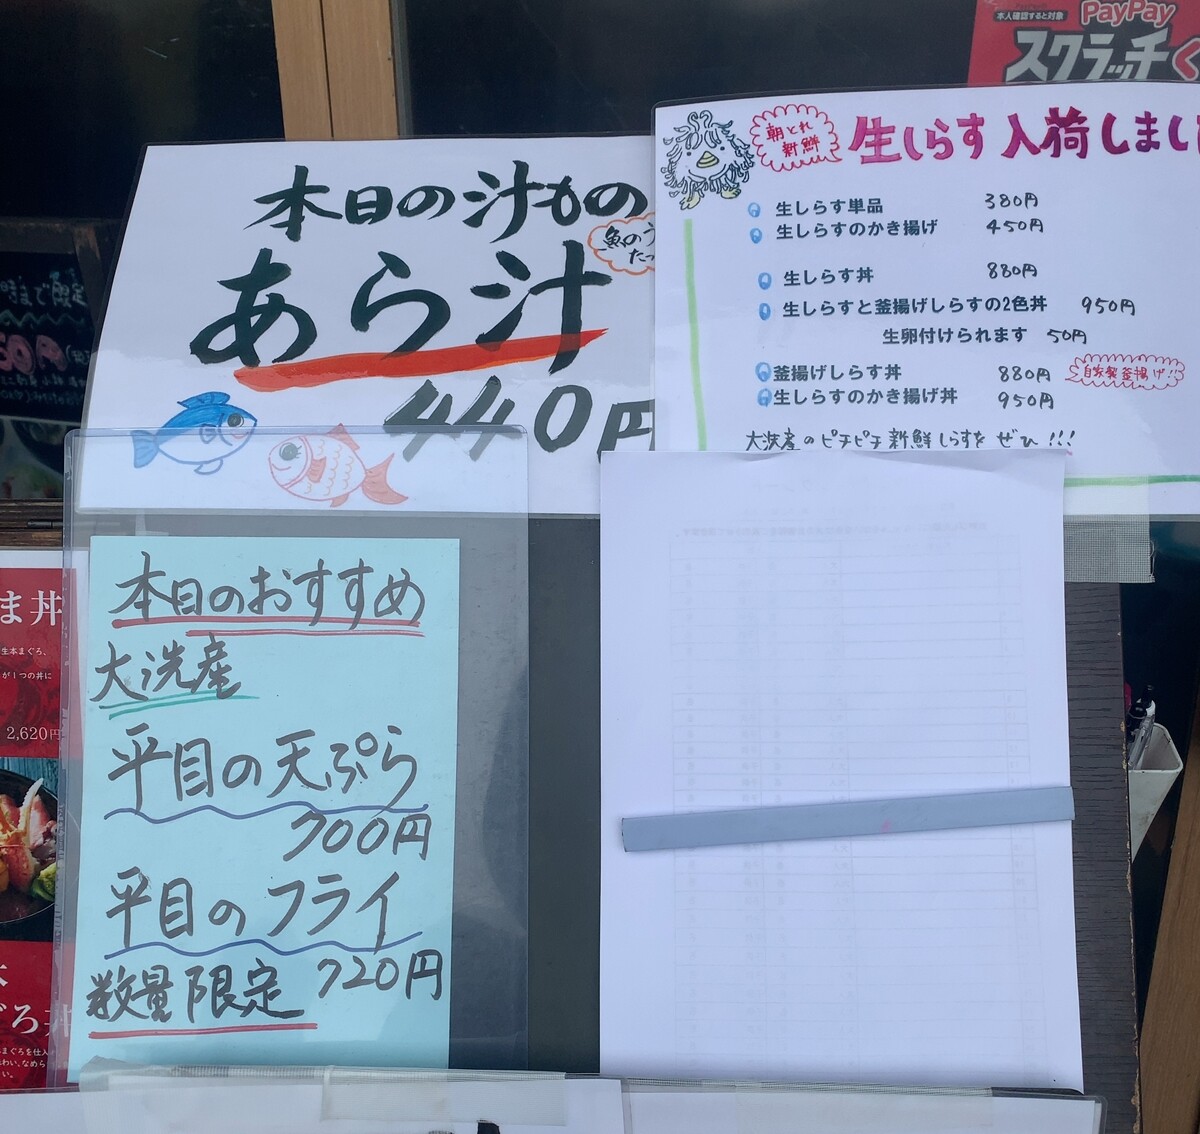 PayPay
本人確認すると対象
スクラッチく
本日の汁もの
あら汁
魚のう
たっ
440円
朝とれ
新鮮
生しらす入荷しまし
生しらす単品 380円
生しらすのかき揚げ 450円
生しらす丼 880円
生しらすと釜揚げしらすの2色丼 950円
生卵付けられます 50円
釜揚げしらす丼 880円
自家製釜揚げ!!
生しらすのかき揚げ丼 950円
大洗産のピチピチ新鮮しらすを ぜひ!!!
時まで限定
50円
本日のおすすめ
大洗産
平目の天ぷら
700円
平目のフライ
720円
数量限定
ま丼
生本まぐろ、
が1つの丼に
2,620円
ろ丼
まぐろを仕入
わい、なめら
い。